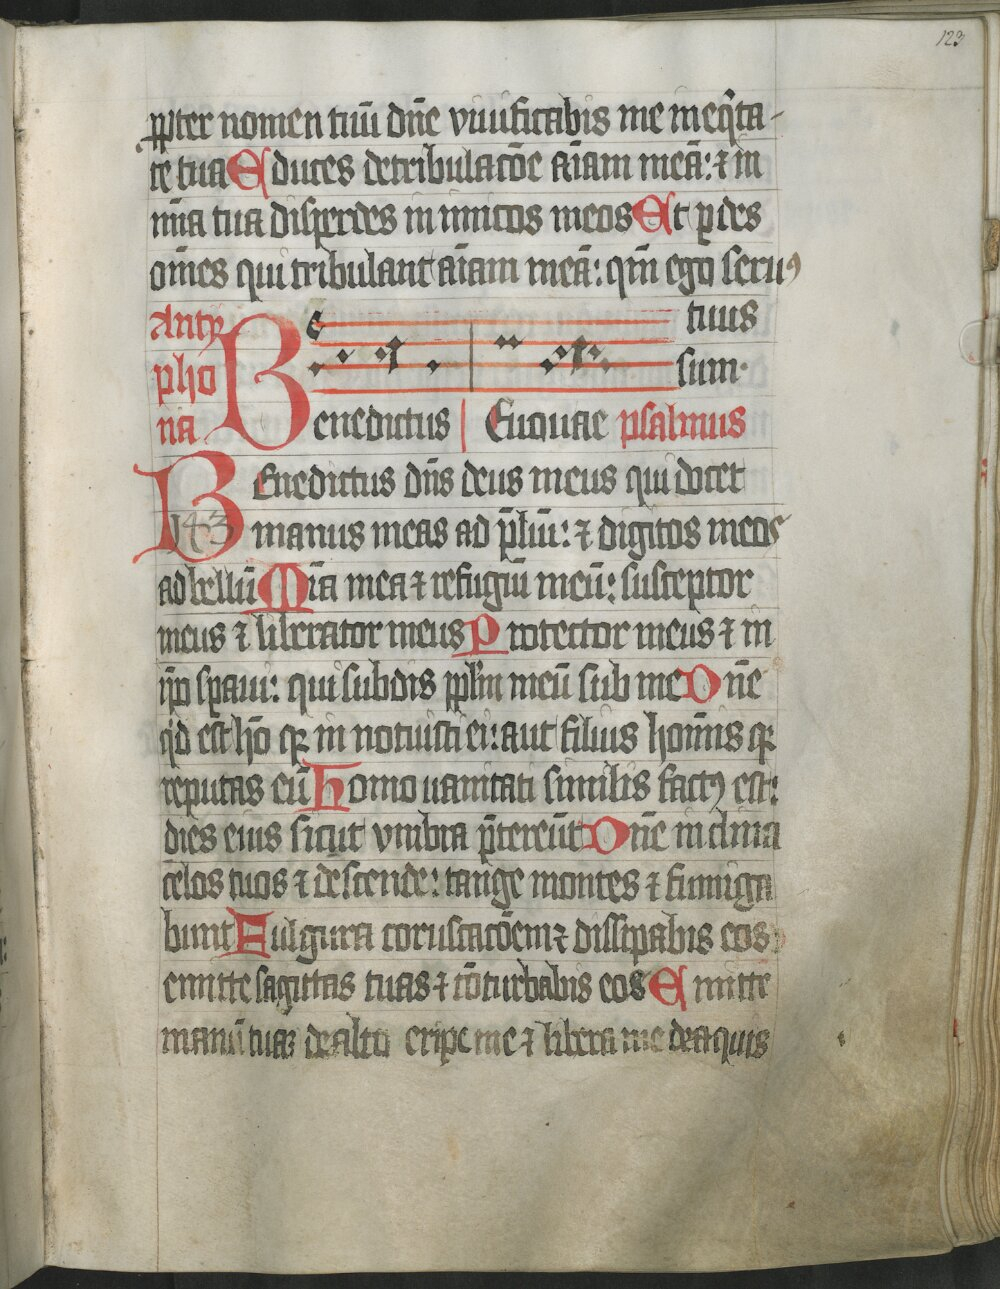 123
ꝓpter nomen tuū dn̄e viuificabis me in eq̄ta-
te tua Educes de tribulatōe aīam meā: ⁊ in
mīa tua disperdes inimicos meos Et ꝑdes
om̄es qui tribulant aīam meā: qm̄ ego seruꝰ
Antyphona
tuus
sum.
Benedictus Euouae psalmus
Benedictus dn̄s deus meus qui docet
143
manus meas ad p̄liū: ⁊ digitos meos
ad bellū Mīa mea ⁊ refugiū meū: susceptor
meus ⁊ liberator meus Protector meus ⁊ in
ip̄o spaui: qui subdis pplm̄ meū sub me Dn̄e
qd est hō qꝛ innotuisti ei: aut filius homīs qꝛ
reputas eū homo uanitati similis factꝰ est:
dies eius sicut vmbra p̄tereūt Dn̄e inclina
celos tuos ⁊ descende: tange montes ⁊ fumiga
bunt Fulgura coruscatōem ⁊ dissipabis eos
emitte sagittas tuas ⁊ cōturbabis eos Emitte
manū tuaꝫ de alto eripe me ⁊ libera me de aquis